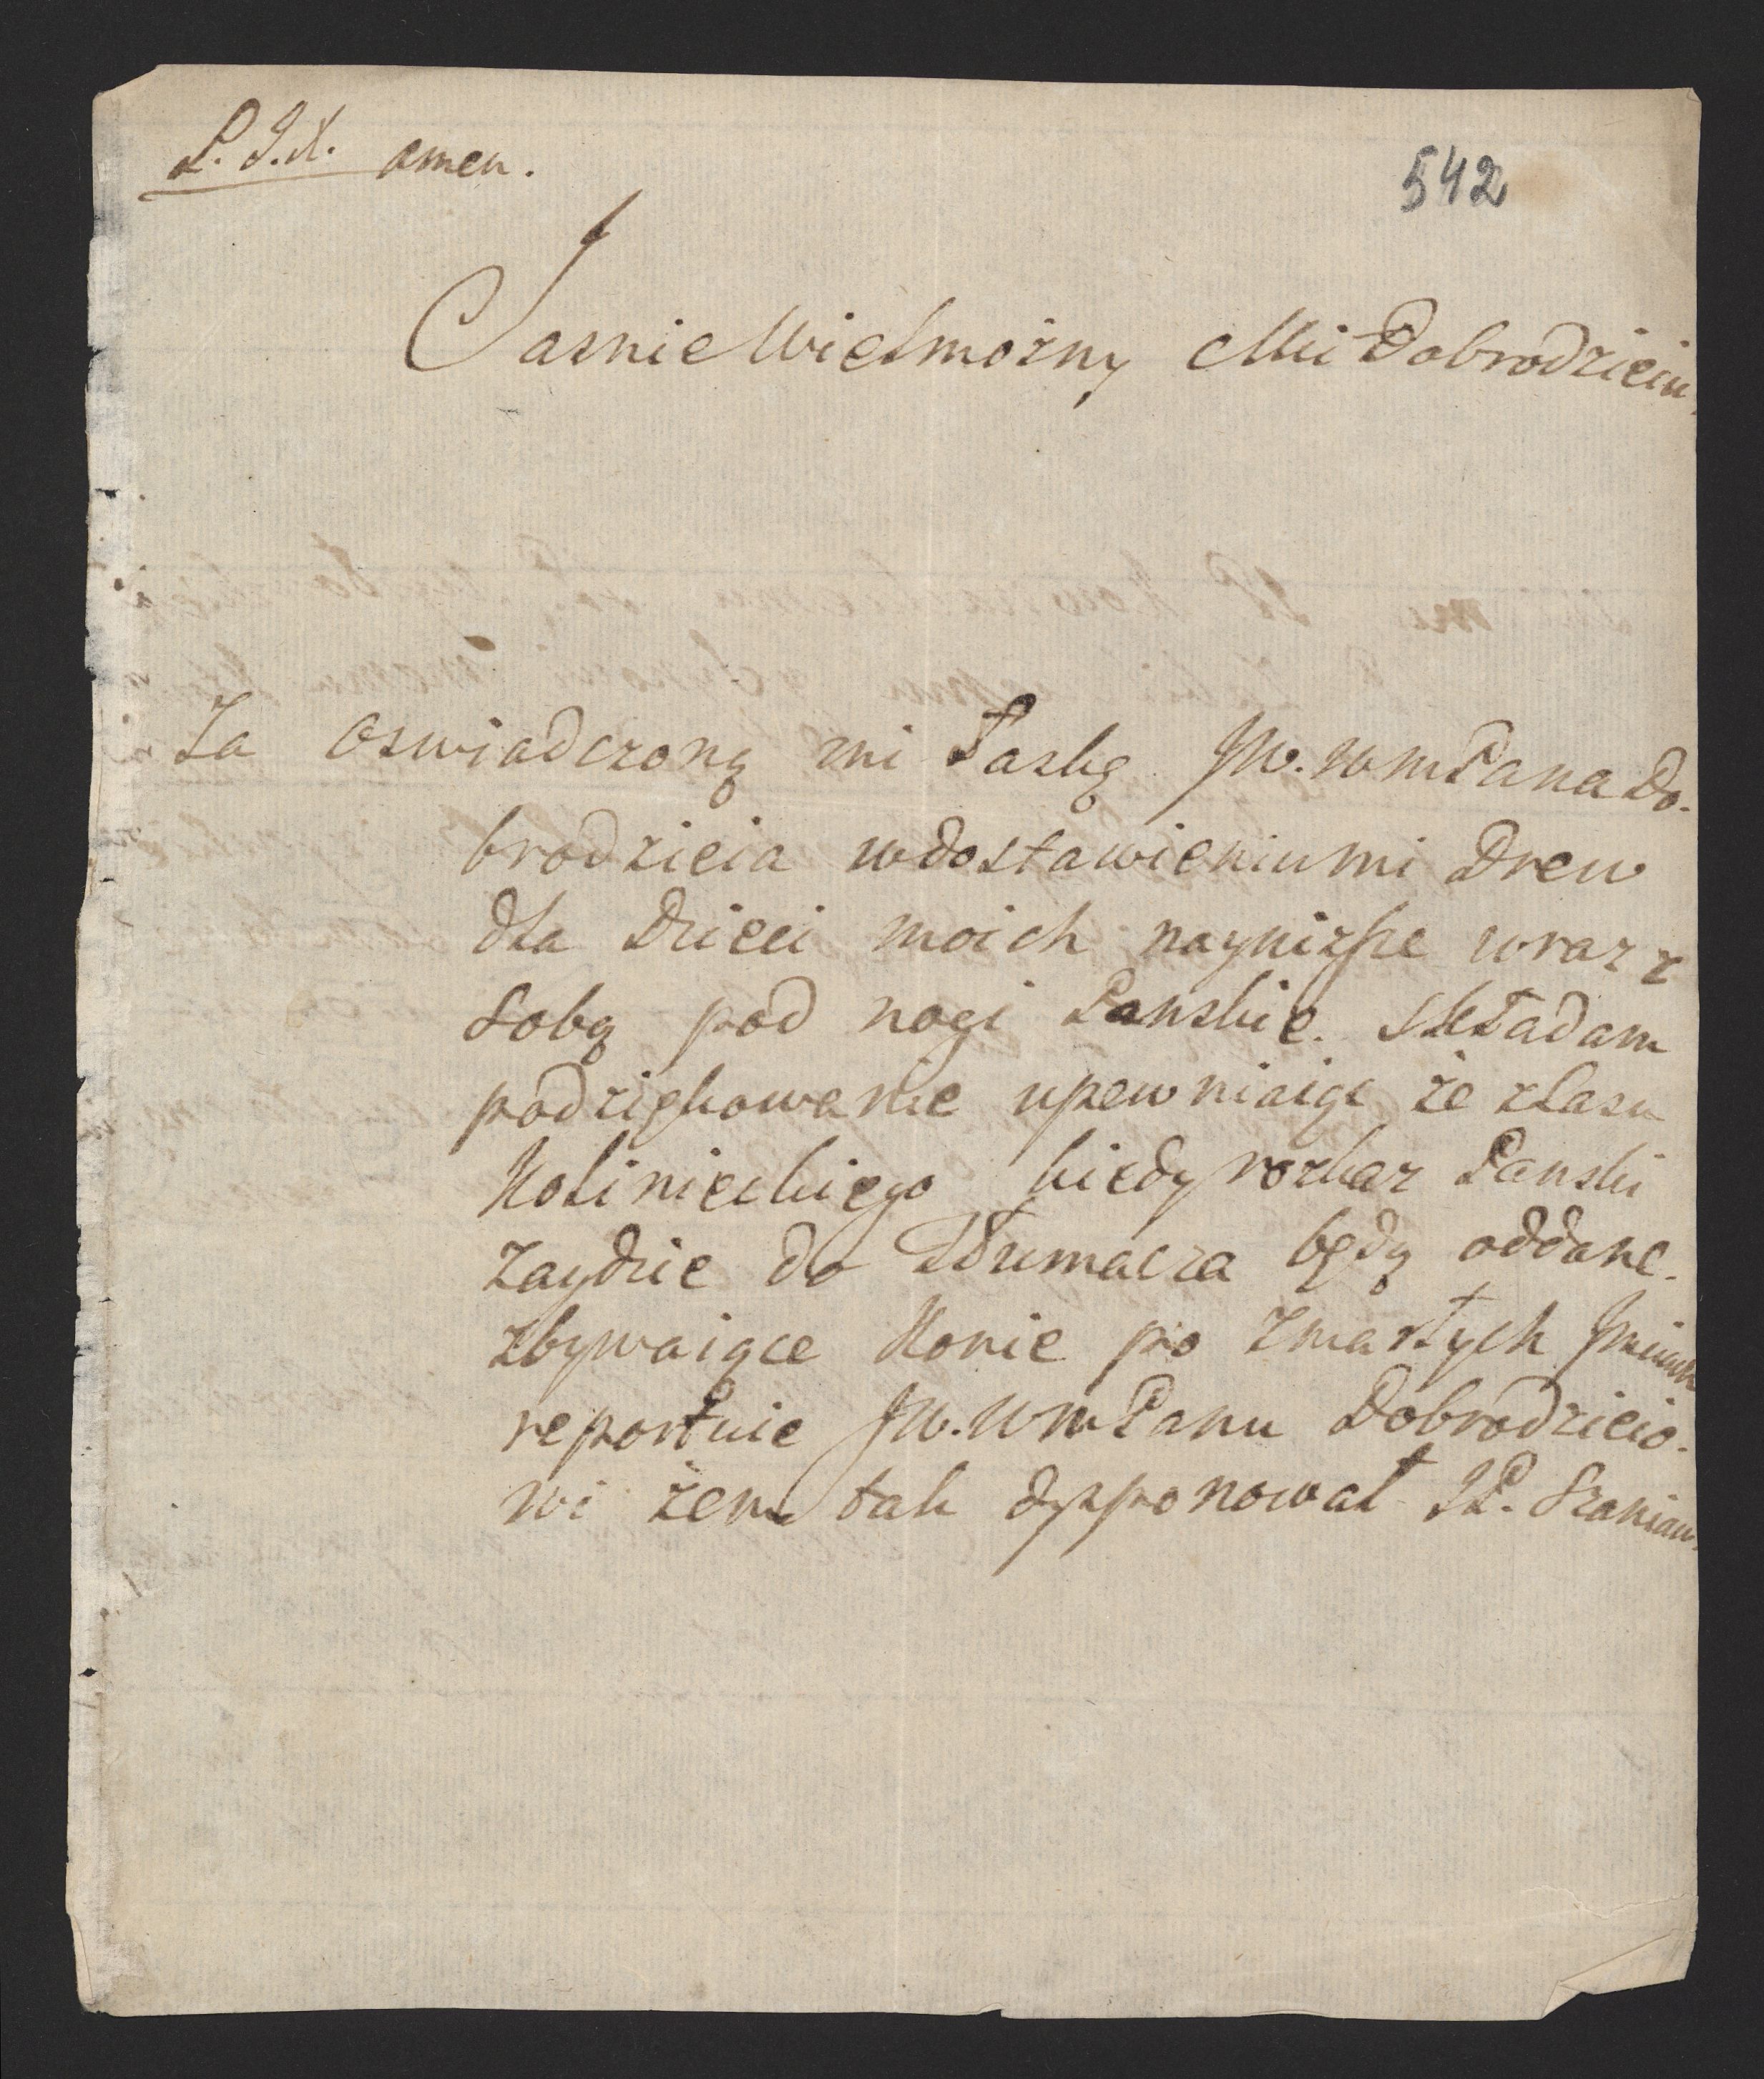 L. J. X. amen.
542
Jasnie Wielmożny Mci Dobrodzieiu
Za oswiadczoną mi Łaskę JW. WmPana Do-
brodzieia wdostawieniu mi Drew
dla Dzieci moich naynizsze wraz z
Sobą pod nogi Panskie. składam
podziękowanie upewniaiąc że zlasu
Kolinieckiego kiedy rozkaz Panski
zaydzie do Tłumacza będą oddane.
zbywaiące Konie po zmarłych
reportuie JW. WmPanu Dobrodzieio-
wi żem tak dysponował JP. Szaniaw